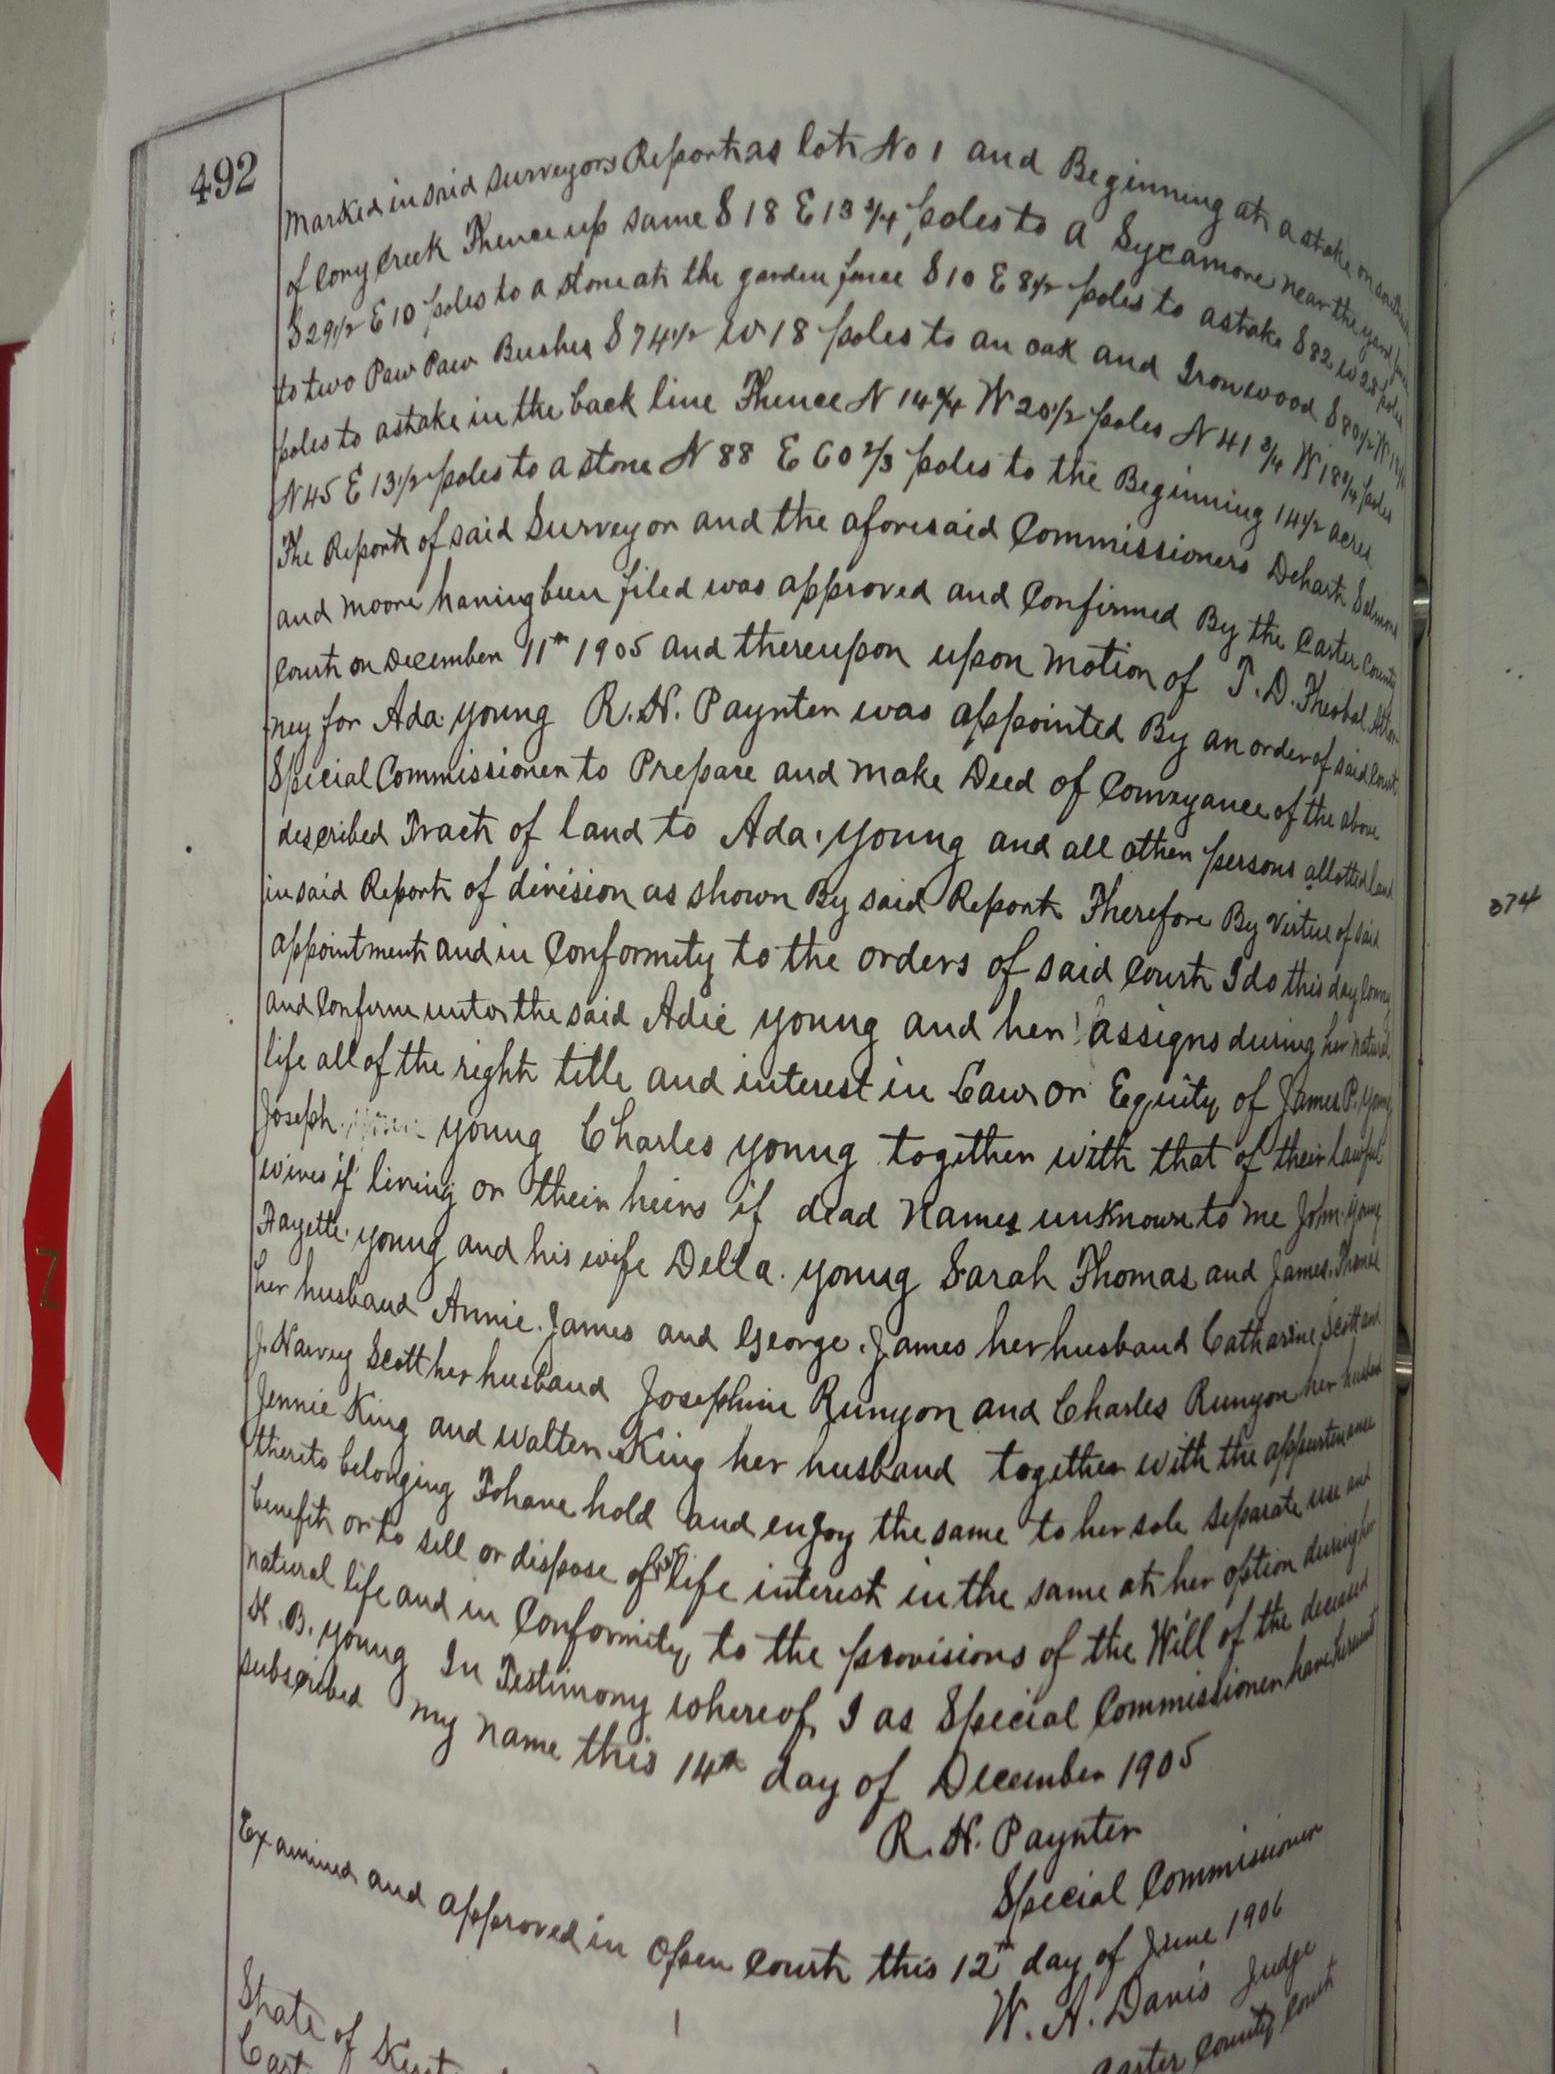 492
Marked in said surveyors Report as lot No 1 and Beginning at a stake on
of Cony Creek Thence up same S 18 E 13 3/4 poles to a Sycamore near the yard
S 29 1/2 E 10 poles to a stone at the garden fence S 10 E 8 1/2 poles to a stake S 82 W 28 poles
to two Paw Paw Bushes S 74 1/2 W 18 poles to an oak and Ironwood S 80 1/2 W
poles to a stake in the back line Thence N 14 3/4 W 20 1/2 poles N 41 3/4 W 18 3/4 poles
N 45 E 13 1/2 poles to a stone N 88 E 60 2/3 poles to the Beginning 14 1/2 acres
The Report of said Surveyor and the aforesaid Commissioners Dehart Salmons
and Moore having been filed was approved and Confirmed By the Carter County
Court on December 11th 1905 and thereupon upon motion of T. D. Theobal Attor
ney for Ada young R. H. Paynter was appointed By an order of said Court
Special Commissioner to Prepare and make Deed of Conveyance of the above
described Tract of land to Ada young and all other persons allotted land
in said Report of division as shown By said Report Therefore By virtue of said
appointment and in Conformity to the orders of said Court I do this day Convey
and Confirm unto the said Adie young and her assigns during her natural
life all of the right title and interest in Law or Equity of James P. young
Joseph young Charles young together with that of their lawful
wives if living or their heirs if dead names unknown to me John young
Fayette young and his wife Della young Sarah Thomas and James Thomas
her husband Annie James and George James her husband Catharine Scott and
J. Harvey Scott her husband Josephine Runyon and Charles Runyon her husband
Jennie King and Walter King her husband together with the appurtenances
thereto belonging To have hold and enjoy the same to her sole separate use and
benefit or to sell or dispose of her life interest in the same at her option during her
natural life and in Conformity to the provisions of the Will of the deceased
H. B. young In Testimony whereof I as Special Commissioner have hereunto
subscribed my name this 14th day of December 1905
R. H. Paynter
Special Commissioner
Examined and approved in Open Court this 12th day of June 1906
W. A. Davis Judge
Carter County Court
State of
374
Z